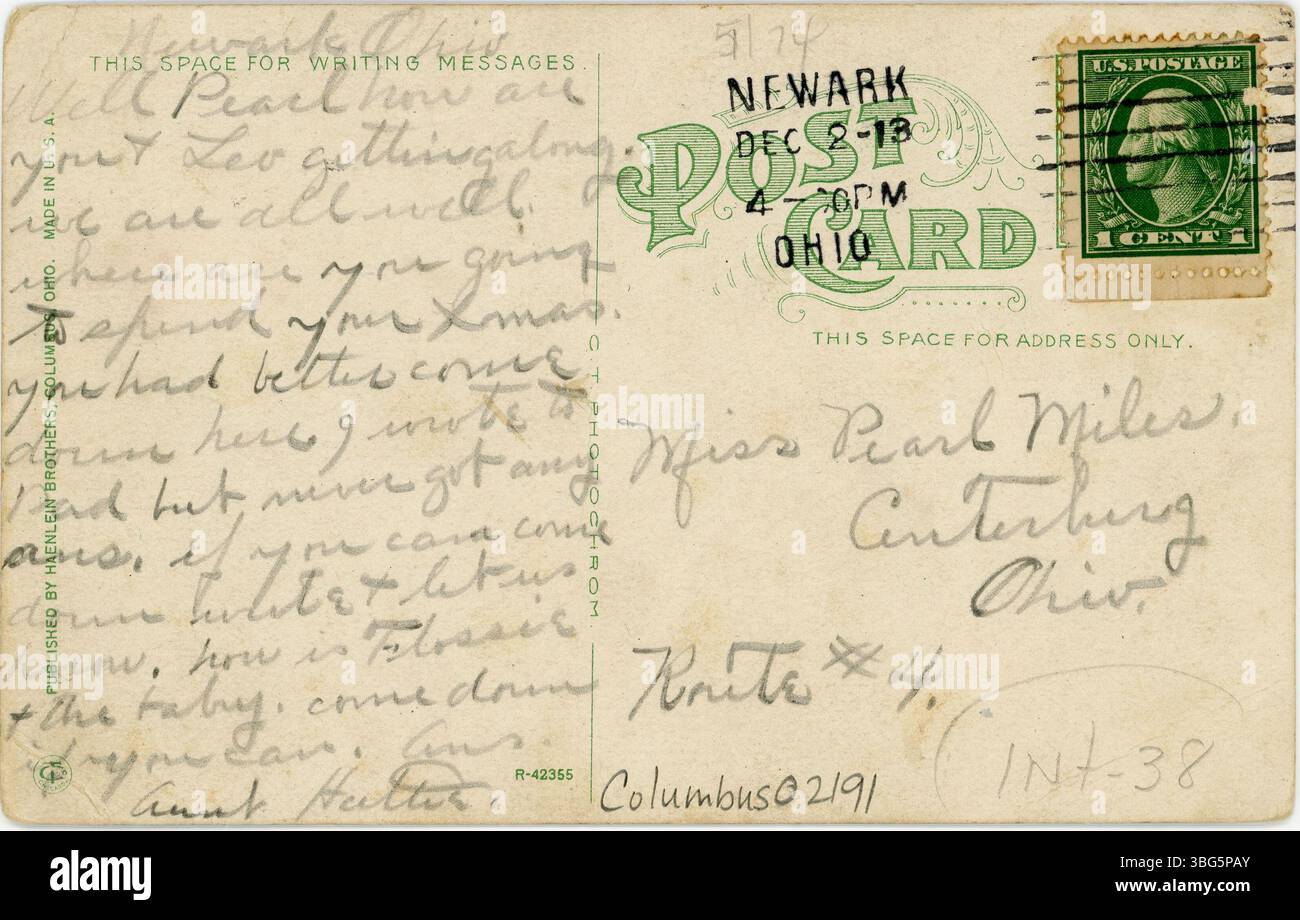 Newark Ohio
THIS SPACE FOR WRITING MESSAGES.
Well Pearl how are
you & Leo getting along.
we are all well.
where are you going
to spend your Xmas.
you had better come
down here I wrote to
Dad but never got any
ans. if you can come
down write & let us
know. how is Flossie
& the baby. come down
if you can. Ans.
Aunt Hattie.
PUBLISHED BY HAENLEIN BROTHERS, COLUMBUS, OHIO. MADE IN U. S. A.
C T PHOTOCHROM
R-42355
5/74
NEWARK
DEC 2-13
4- 0PM
OHIO
POST CARD
U.S. POSTAGE
1 CENT 1
THIS SPACE FOR ADDRESS ONLY.
Miss Pearl Miles.
Centerburg
Ohio.
Route # 4.
INT-38
Columbus02191
alamy
a
Image ID: 3BG5PAY
www.alamy.com